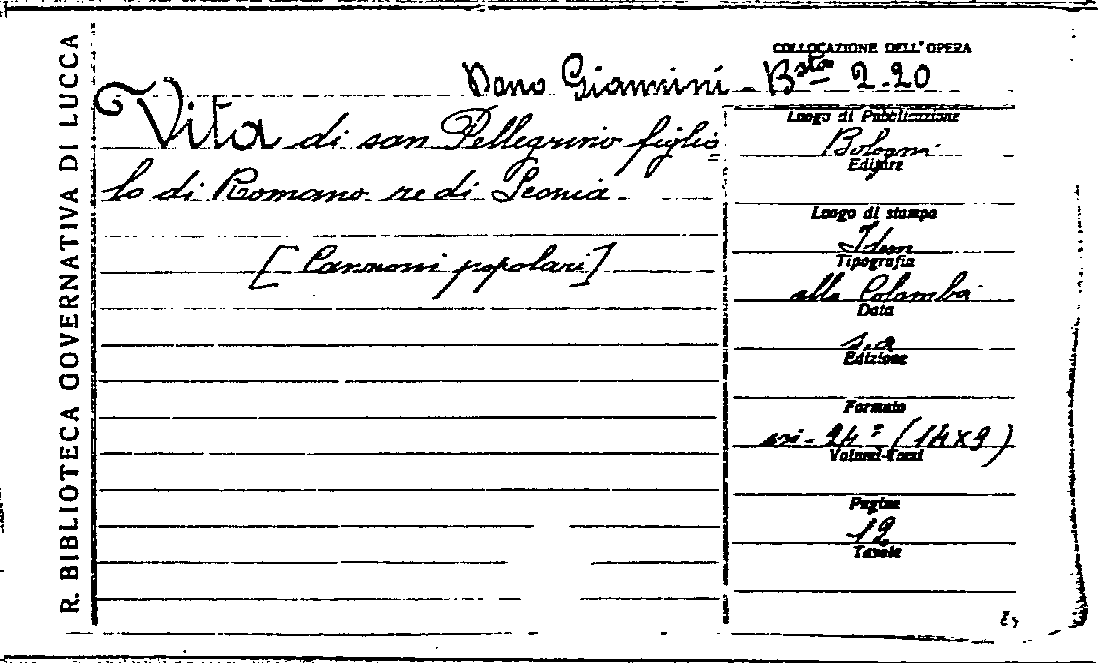 R. BIBLIOTECA GOVERNATIVA DI LUCCA
COLLOCAZIONE DELL'OPERA
Dono Giannini - Bsta 2.20
Vita di san Pellegrino figlio
lo di Romano re di
[Canzoni popolari]
Luogo di Pubblicazione
Bologna
Editore
Luogo di stampa
Idem
Tipografia
alla Colomba
Data
s.a
Edizione
Formato
24° (14x9)
Volumi-Tomi
Pagine
12
Tavole